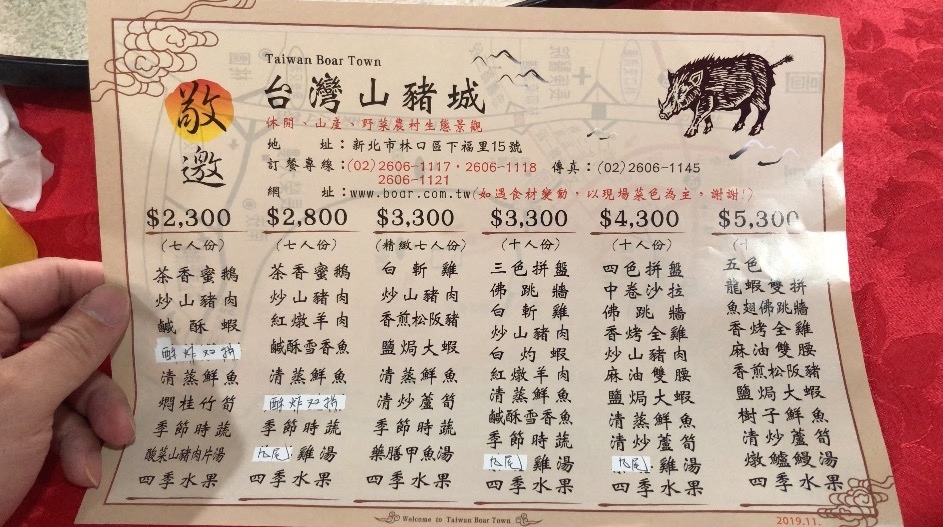 Taiwan Boar Town
敬邀
台灣山豬城
休閒、山產、野菜農村生態景觀
地 址：新北市林口區下福里15號
訂餐專線：(02)2606-1117・2606-1118 傳真：(02)2606-1145
2606-1121
網 址：www.boar.com.tw(如遇食材變動，以現場菜色為主，謝謝!)
$2,300
(七人份)
茶香蜜鵝
炒山豬肉
鹹酥蝦
酥炸双拼
清蒸鮮魚
燜桂竹筍
季節時蔬
酸菜山豬肉片湯
四季水果
$2,800
(七人份)
茶香蜜鵝
炒山豬肉
紅燉羊肉
鹹酥雪香魚
清蒸鮮魚
酥炸双拼
季節時蔬
雞湯
四季水果
$3,300
(精緻七人份)
白斬雞
炒山豬肉
香煎松阪豬
鹽焗大蝦
清蒸鮮魚
清炒蘆筍
季節時蔬
藥膳甲魚湯
四季水果
$3,300
(十人份)
三色拼盤
佛跳牆
白斬雞
炒山豬肉
白灼蝦
紅燉羊肉
清蒸鮮魚
鹹酥雪香魚
季節時蔬
雞湯
四季水果
$4,300
(十人份)
四色拼盤
中卷沙拉
佛跳牆
香烤全雞
炒山豬肉
麻油雙腰
鹽焗大蝦
清蒸鮮魚
清炒蘆筍
雞湯
四季水果
$5,300
五色
龍蝦雙拼
魚翅佛跳牆
香烤全雞
麻油雙腰
香煎松阪豬
鹽焗大蝦
樹子鮮魚
清炒蘆筍
燉鱸鰻湯
四季水果
Welcome to Taiwan Boar Town
2019.11.